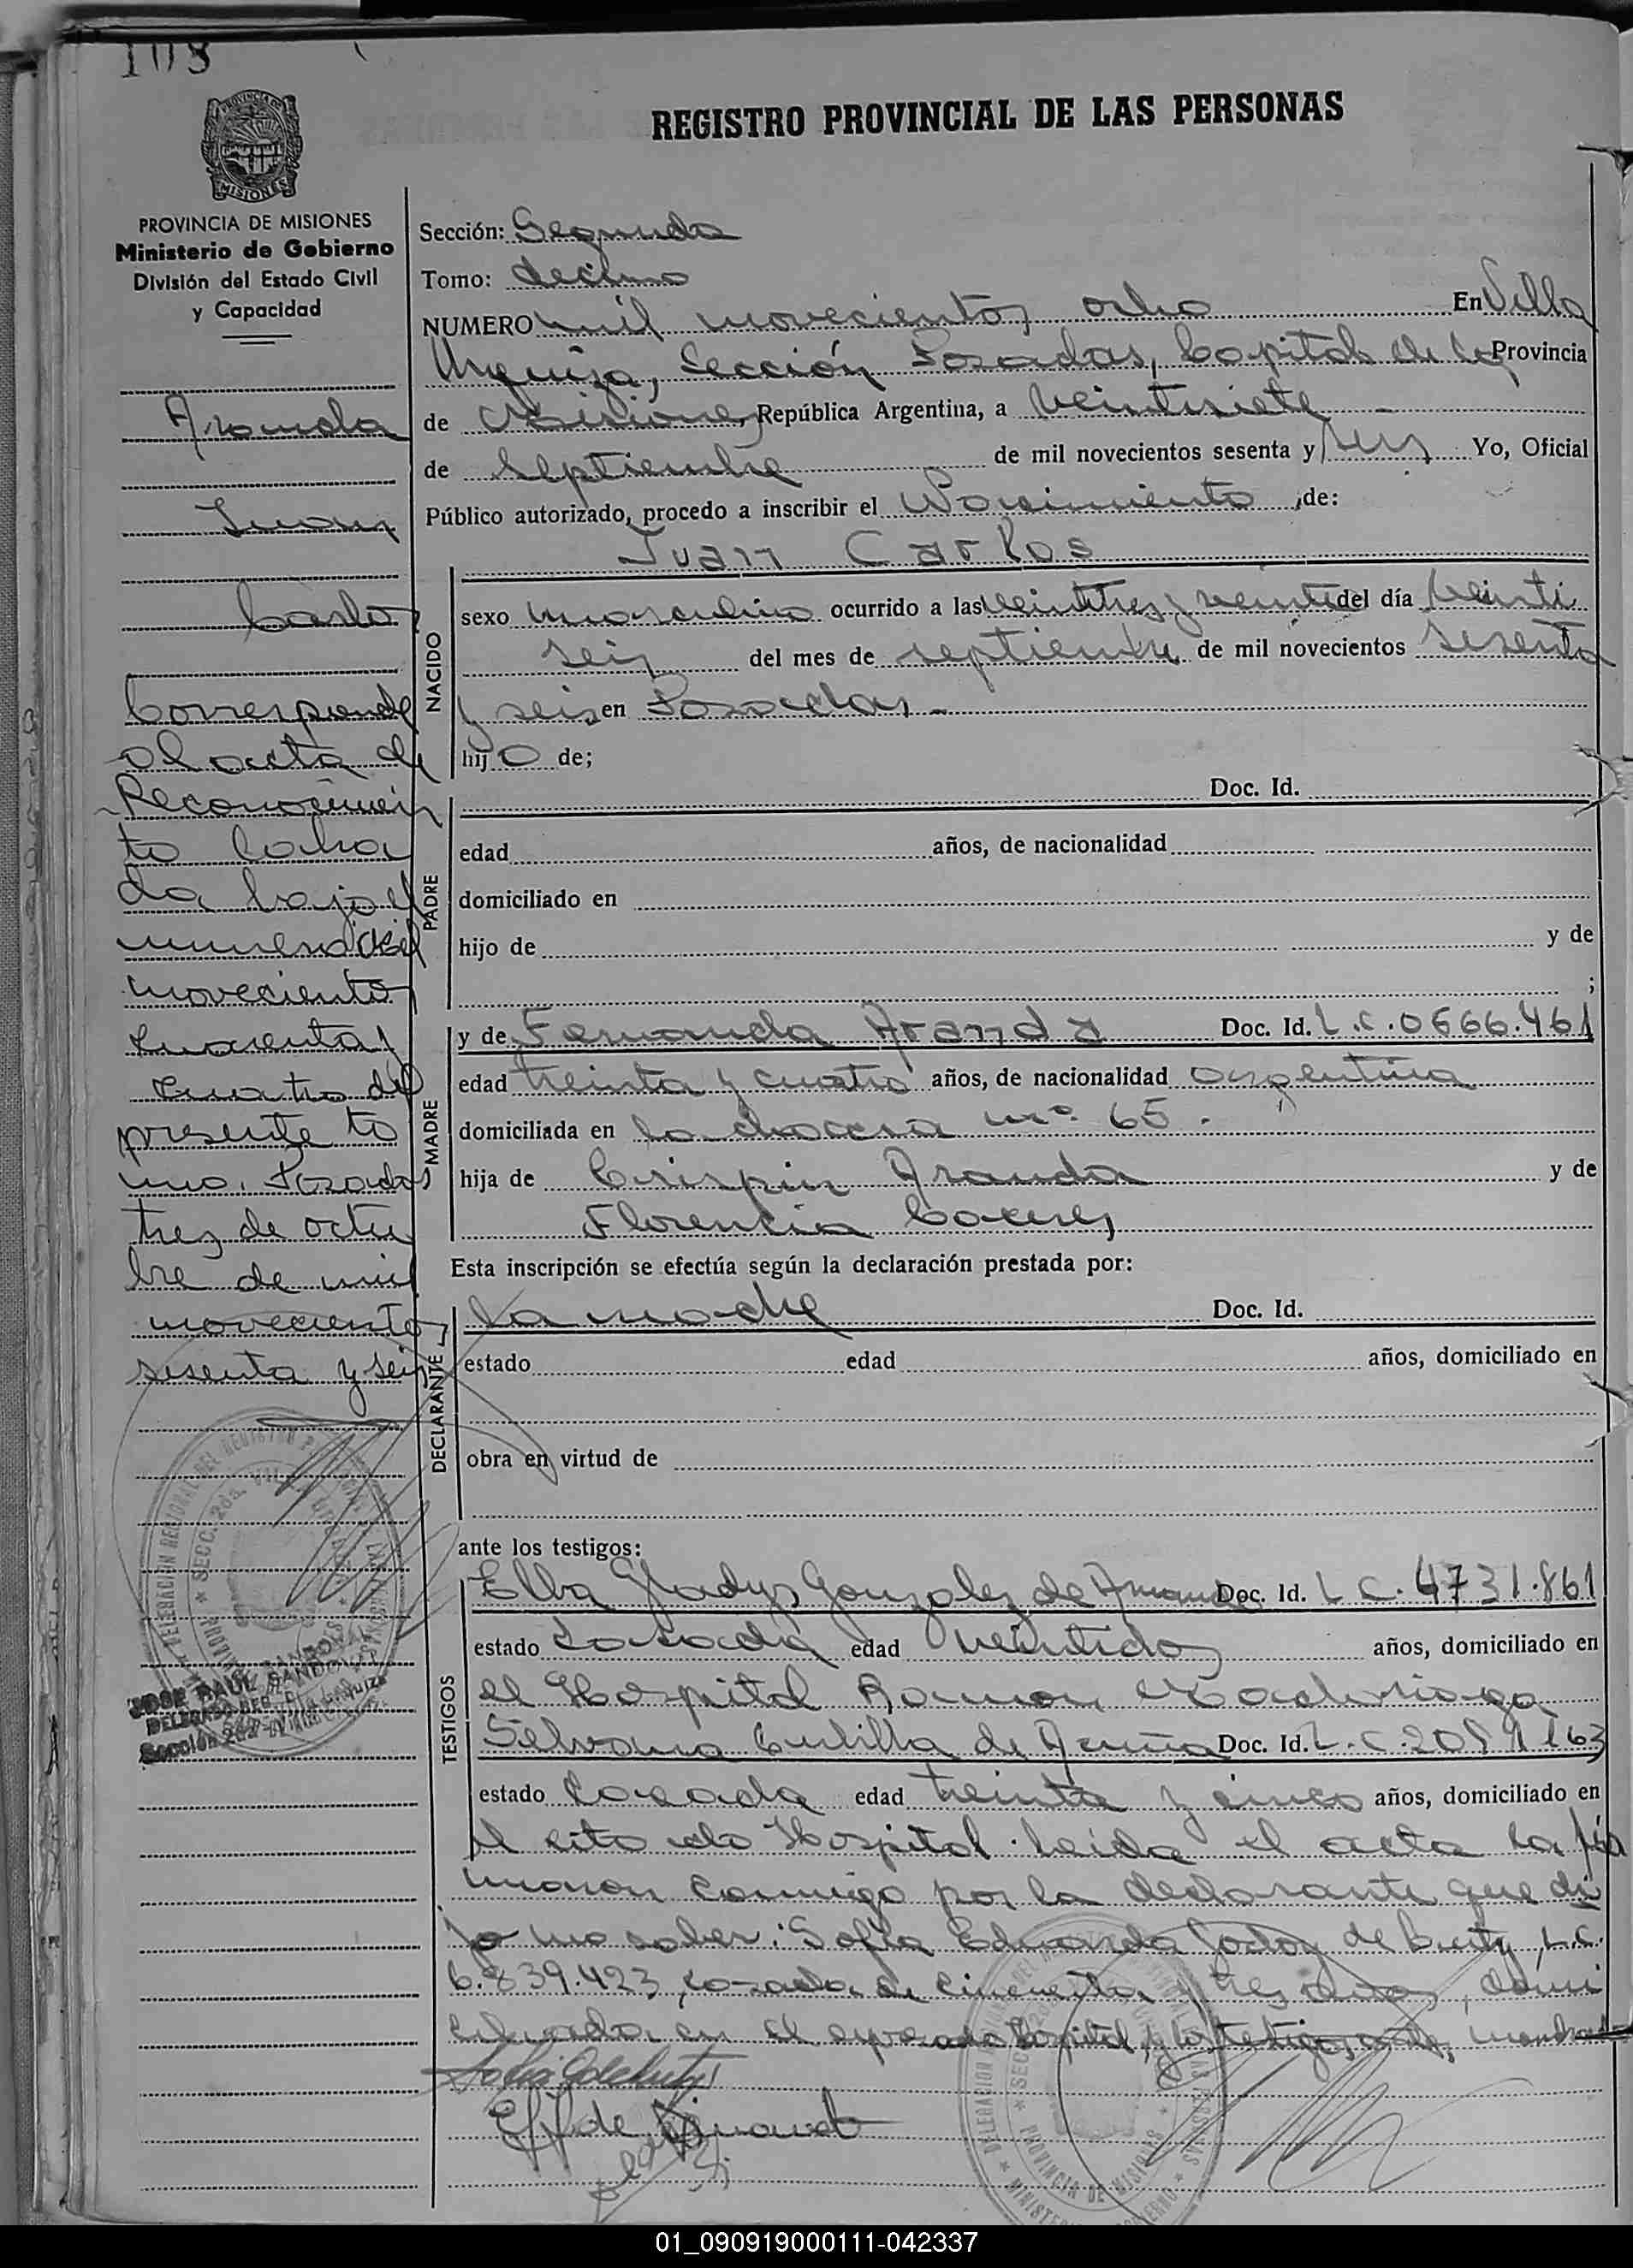 103
REGISTRO PROVINCIAL DE LAS PERSONAS
PROVINCIA DE
MISIONES
PROVINCIA DE MISIONES
Ministerio de Gobierno
División del Estado Civil
y Capacidad
Aranda
Juan
Carlos
Corresponde
al acta de
Reconocimien
to labra
da bajo el
numero mil
novecientos
cuarenta y
cuatro del
presente to
mo. Posadas
tres de octu
bre de mil
novecientos
sesenta y seis
JOSE RAUL SANDOVAL
Sección: Segunda
Tomo: decimo
NUMERO mil novecientos ocho En Villa
Urquiza, Sección Posadas, Capital de la Provincia
de Misiones, República Argentina, a veintisiete
de Septiembre de mil novecientos sesenta y seis Yo, Oficial
Público autorizado, procedo a inscribir el Nacimiento, de:
Juan Carlos
NACIDO
sexo masculino ocurrido a las veintitres y veinte del día veinti
seis del mes de septiembre de mil novecientos sesenta
y seis en Posadas.-
hijo de;
PADRE
Doc. Id.
edad años, de nacionalidad
domiciliado en
hijo de y de
;
MADRE
y de Fernanda Aranda Doc. Id. L.C.0666.461
edad treinta y cuatro años, de nacionalidad argentina
domiciliada en la chacra nº 65.
hija de Crispin Aranda y de
Florencia Caceres
Esta inscripción se efectúa según la declaración prestada por:
DECLARANTE
la madre Doc. Id.
estado edad años, domiciliado en
obra en virtud de
ante los testigos:
TESTIGOS
Elba Gladys Gonzalez de Doc. Id. L C. 4731.861
estado casada edad veintidos años, domiciliado en
el Hospital Ramon Madariaga
Silvana de Doc. Id. L.C.
estado casada edad treinta y cinco años, domiciliado en
el cita do Hospital. leida el acta la fir
maron conmigo por la declarante que di
jo no saber: Sofia Eduarda de L.C.
6.839.423, casada de cincuenta y tres años, domi
ciliada en el Hospital y los testigos
01_090919000111-042337